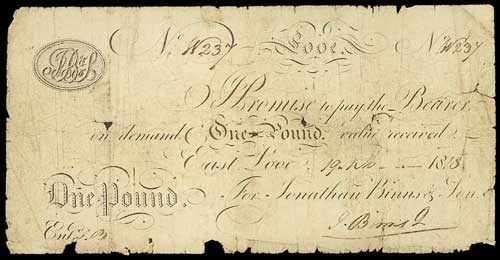 No. W237 Looe. No. W237
I Promise to pay the Bearer
on demand One Pound. value received.
East Looe 19 1818
One Pound. For Jonathan Binns & Son.
Entd. J. B.